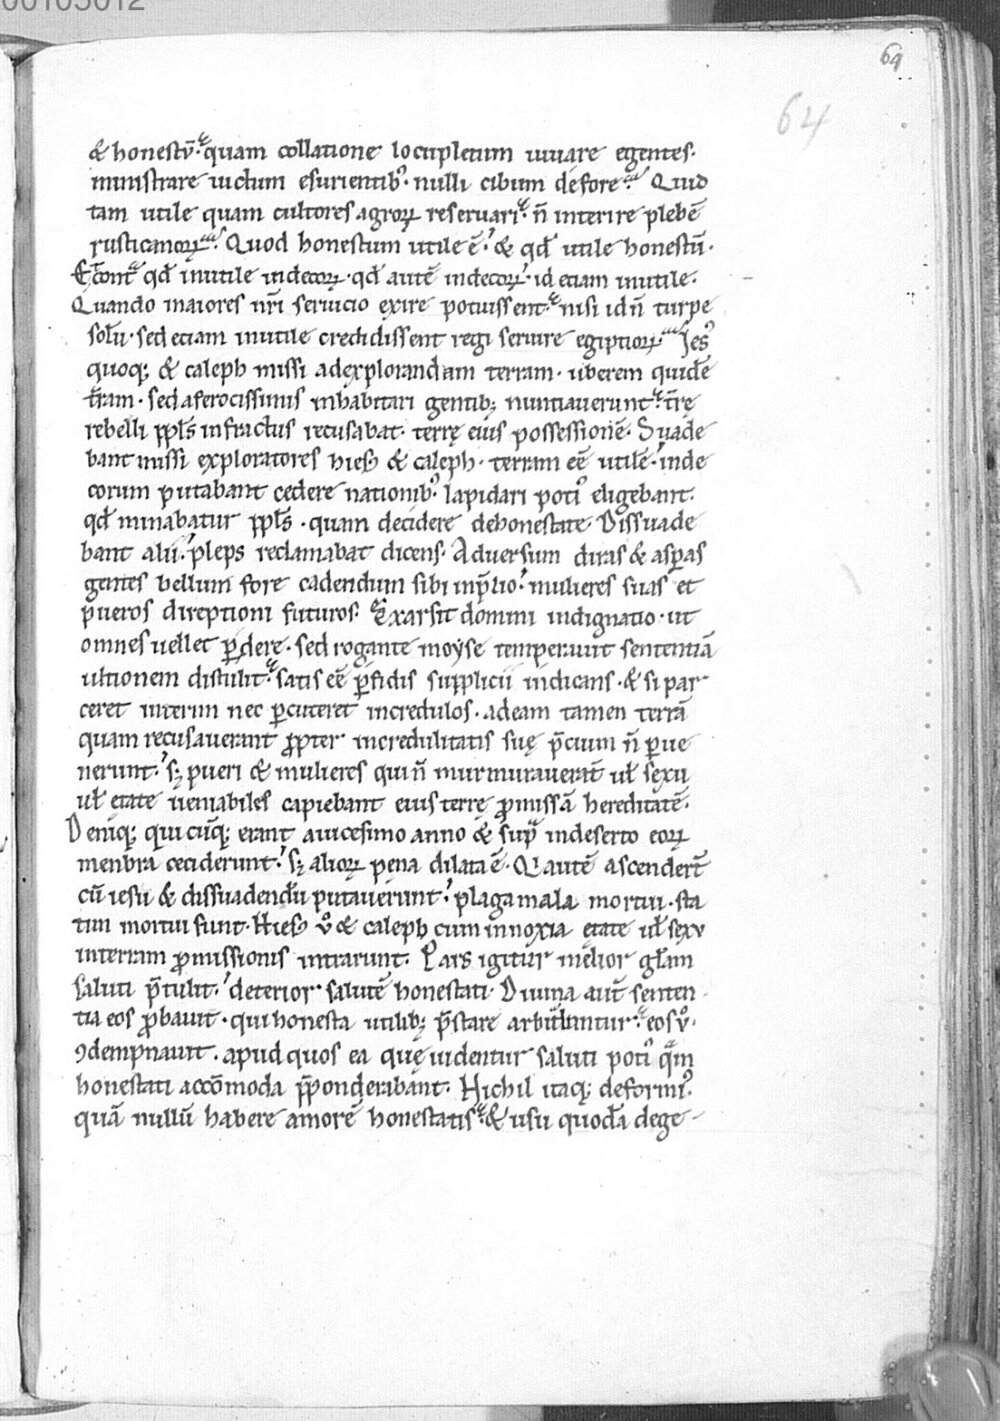 00105012
64
64
& honestū· quam collatione locupletum iuuare egentes·
ministrare uictum esurientib᷒· nulli cibum defore· Quid
tam utile quam cultores agroꝝ reseruari· n̄ interire plebē
rusticanoꝝ· Quod honestum utile ē· & qđ utile honestū·
Econt̄ qđ inutile indecoꝝ· qđ autē indecoꝝ· id etiam inutile·
Quando maiores nr̄i seruicio exire potuissent· nisi id n̄ turpe
solū· sed etiam inutile credidissent regi seruire egiptioꝝ· Ies᷒
quoq; & caleph missi ad explorandam terram· uberem quidē
t̄ram· sed a ferocissimis inhabitari gentib; nuntiauerunt· t̄rę
rebelli ppl̄s infractus recusabat· terrę eius possessionē· Suade
bant missi exploratores hies᷒ & caleph· terram eē utilē· inde
corum putabant cedere nationib᷒· lapidari poti᷒ eligebant·
qđ minabatur ppl̄s· quam decidere de honestate Dissuade
bant alii· pleps reclamabat dicens· Aduersum diras & asp̄as
gentes bellum fore cadendum sibi in p̄lio· mulieres suas et
pueros direptioni futuros· Exarsit domini indignatio· ut
omnes uellet ꝑdere· sed rogante moyse temperauit sententiā
ultionem distulit· satis eē ꝑfidis supplicii indicans· & si par
ceret interim nec ꝑcuteret incredulos· ad eam tamen terrā
quam recusauerant ꝓpter incredulitatis suę p̄cium n̄ ꝑue
nerunt· s; pueri & mulieres qui n̄ murmurauerāt ul̄ sexu
ul̄ etate ueniabiles capiebant eius terrę ꝓmissā hereditatē·
Deniq; qui cūq; erant a uicesimo anno & sup̄ in deserto eoꝝ
menbra ceciderunt· s; alioꝝ pena dilata ē· Qi autē ascender̄t
cū iesu & dissuadendū putauerunt· plaga mala mortui· sta
tim mortui sunt· Hies᷒ v̊ & caleph cum innoxia etate ul̄ sexu
in terram ꝓmissionis intrarunt· Pars igitur melior gl̄am
saluti p̄tulit· deterior salutē honestati· Diuina aut̄ senten
tia eos ꝓbauit· qui honesta utilib; p̄stare arbitrantur· eos v̊·
ꝯdempnauit· apud quos ea quę uidentur saluti poti᷒ q̄m
honestati accōmoda p̄ponderabant· Nichil itaq; deformi᷒·
quā nullū habere amorē honestatis· & usu quodā dege-